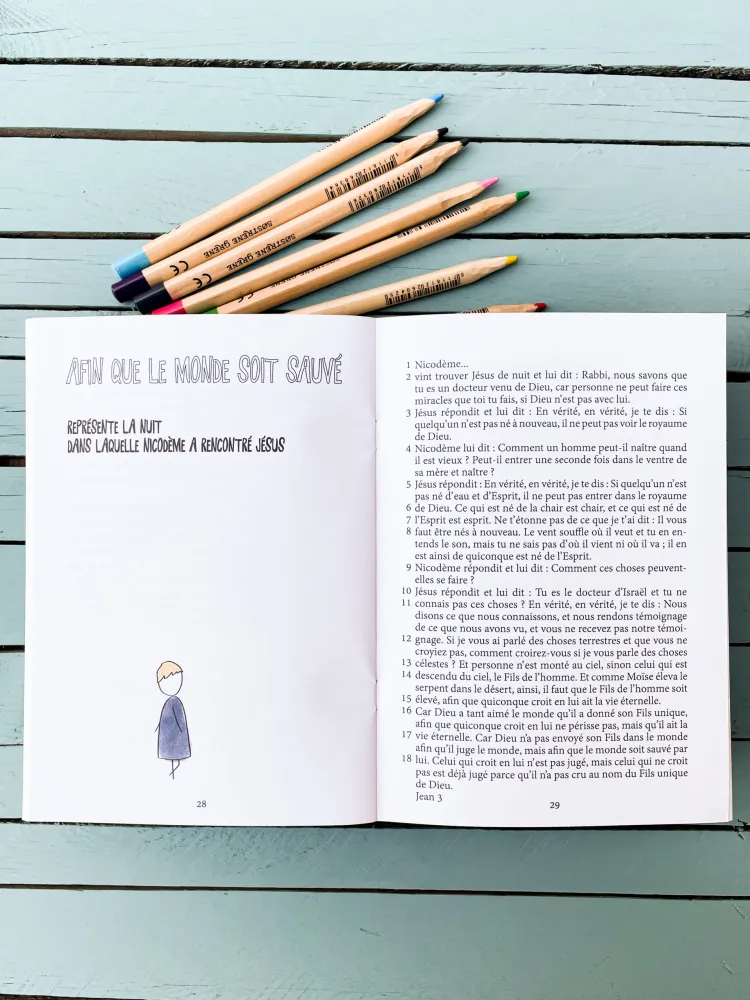 SØSTRENE GRENE
SØSTRENE GRENE
AFIN QUE LE MONDE SOIT SAUVÉ
REPRÉSENTE LA NUIT
DANS LAQUELLE NICODÈME A RENCONTRÉ JÉSUS
28
1 Nicodème...
2 vint trouver Jésus de nuit et lui dit : Rabbi, nous savons que
tu es un docteur venu de Dieu, car personne ne peut faire ces
miracles que toi tu fais, si Dieu n'est pas avec lui.
3 Jésus répondit et lui dit : En vérité, en vérité, je te dis : Si
quelqu'un n'est pas né à nouveau, il ne peut voir le royaume
de Dieu.
4 Nicodème lui dit : Comment un homme peut-il naître quand
il est vieux ? Peut-il entrer une seconde fois dans le ventre de
sa mère et naître ?
5 Jésus répondit : En vérité, en vérité, je te dis : Si quelqu'un n'est
pas né d'eau et d'Esprit, il ne peut pas entrer dans le royaume
6 de Dieu. Ce qui est né de la chair est chair, et ce qui est né de
7 l'Esprit est esprit. Ne t'étonne pas de ce que je t'ai dit : Il vous
8 faut être nés à nouveau. Le vent souffle où il veut et tu en en-
tends le son, mais tu ne sais pas d'où il vient ni où il va ; il en
est ainsi de quiconque est né de l'Esprit.
9 Nicodème répondit et lui dit : Comment ces choses peuvent-
elles se faire ?
10 Jésus répondit et lui dit : Tu es le docteur d'Israël et tu ne
11 connais pas ces choses ? En vérité, en vérité, je te dis : Nous
disons ce que nous connaissons, et nous rendons témoignage
de ce que nous avons vu, et vous ne recevez pas notre témoi-
12 gnage. Si je vous ai parlé des choses terrestres et que vous ne
croyiez pas, comment croirez-vous si je vous parle des choses
13 célestes ? Et personne n'est monté au ciel, sinon celui qui est
14 descendu du ciel, le Fils de l'homme. Et comme Moïse éleva le
serpent dans le désert, ainsi, il faut que le Fils de l'homme soit
15 élevé, afin que quiconque croit en lui ait la vie éternelle.
16 Car Dieu a tant aimé le monde qu'il a donné son Fils unique,
afin que quiconque croit en lui ne périsse pas, mais qu'il ait la
17 vie éternelle. Car Dieu n'a pas envoyé son Fils dans le monde
afin qu'il juge le monde, mais afin que le monde soit sauvé par
18 lui. Celui qui croit en lui n'est pas jugé, mais celui qui ne croit
pas est déjà jugé parce qu'il n'a pas cru au nom du Fils unique
de Dieu.
Jean 3
29